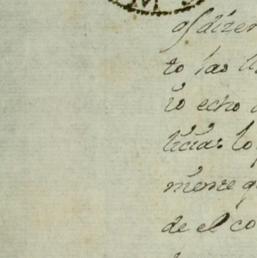 M
q̃ dizen
to las
io echo
licias lo
mente q
de el co